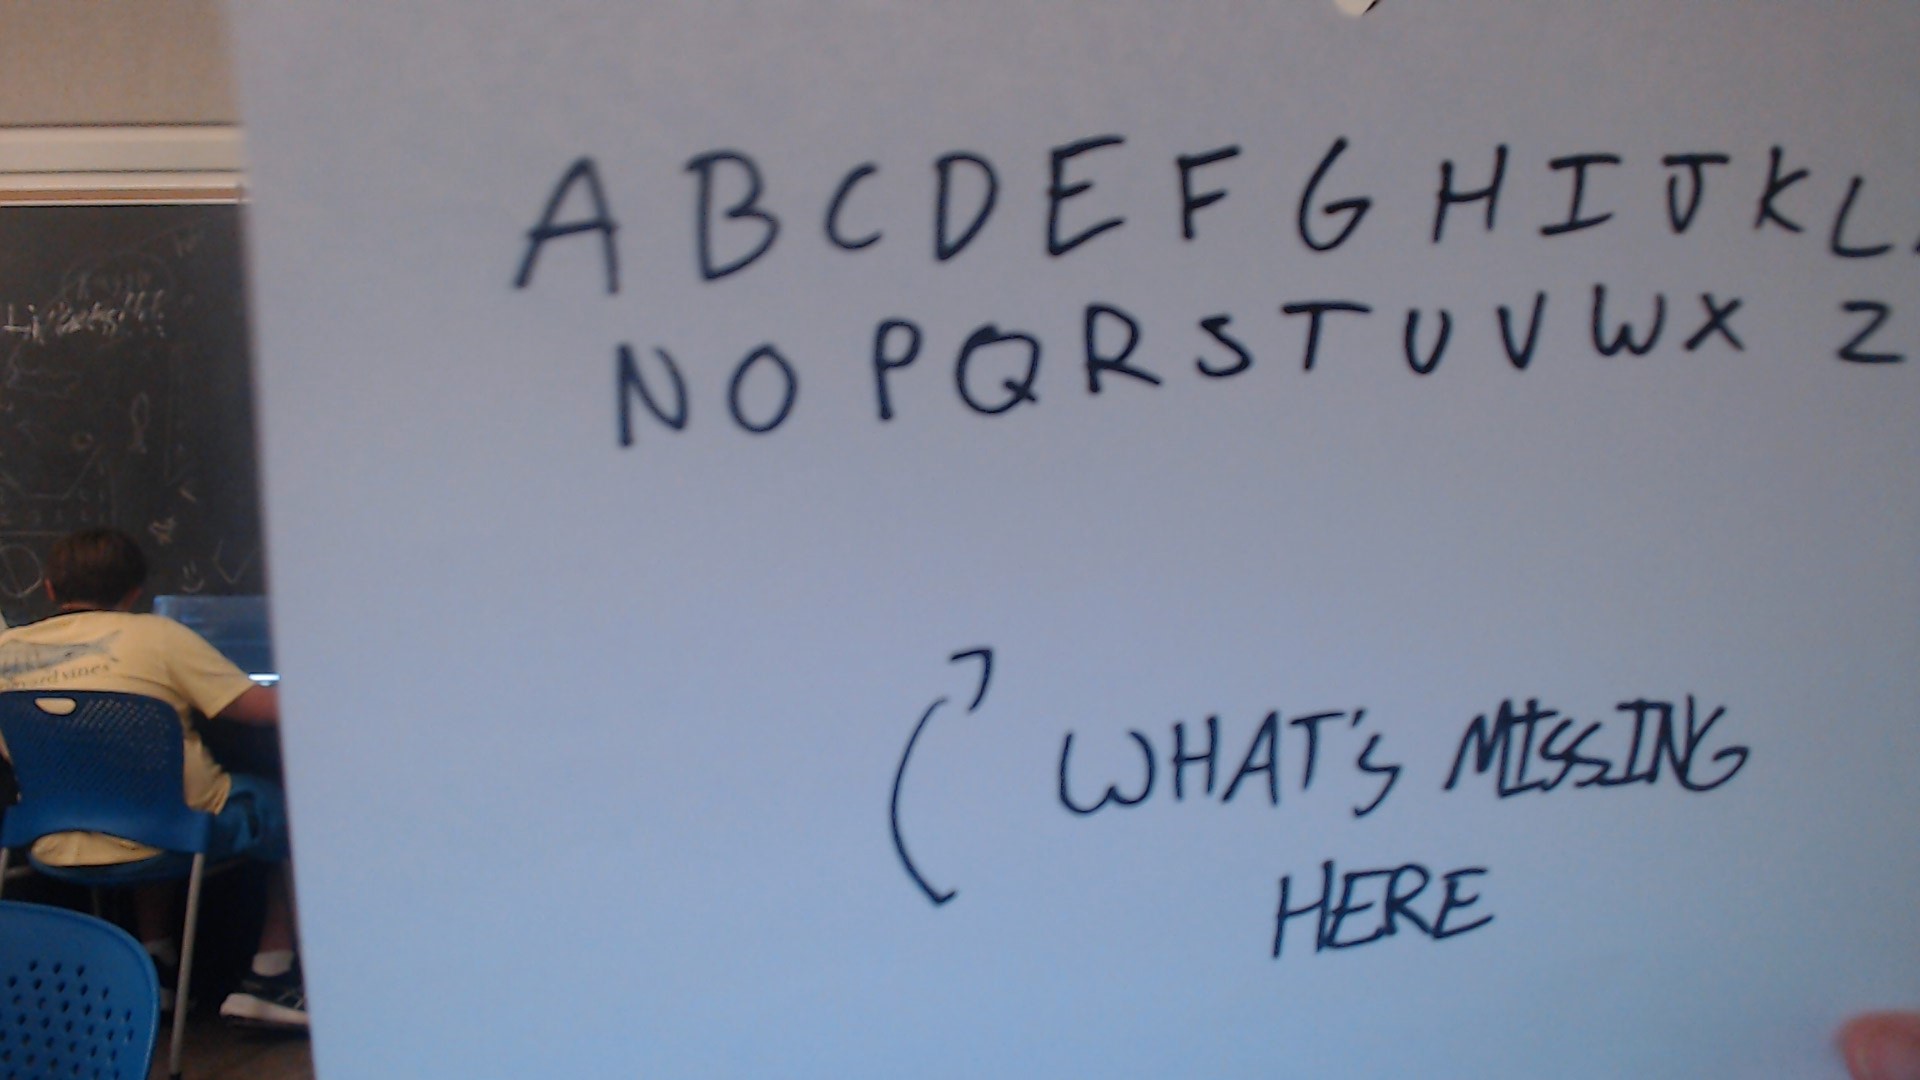 A B C D E F G H I J K L
N O P Q R S T U V W X Z
WHAT'S MISSING
HERE